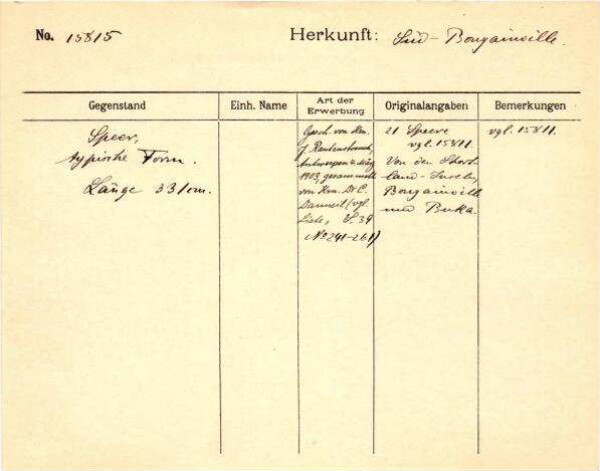 No. 15815
Herkunft: Süd-Bougainville.
Gegenstand
Einh. Name
Art der
Erwerbung
Originalangaben
Bemerkungen
Speer,
typische Form.
Länge 331 cm.
Gesch. von Hrn.
J. Rautenstrauch,
Antwerpen
1903, gesammelt
von Hrn. Dr. C.
Dannert (vgl.
Liste, S. 39
No 241-261)
21 Speere
vgl. 15811.
Von den Short-
land-Inseln,
Bougainville
und Buka.
vgl. 15811.